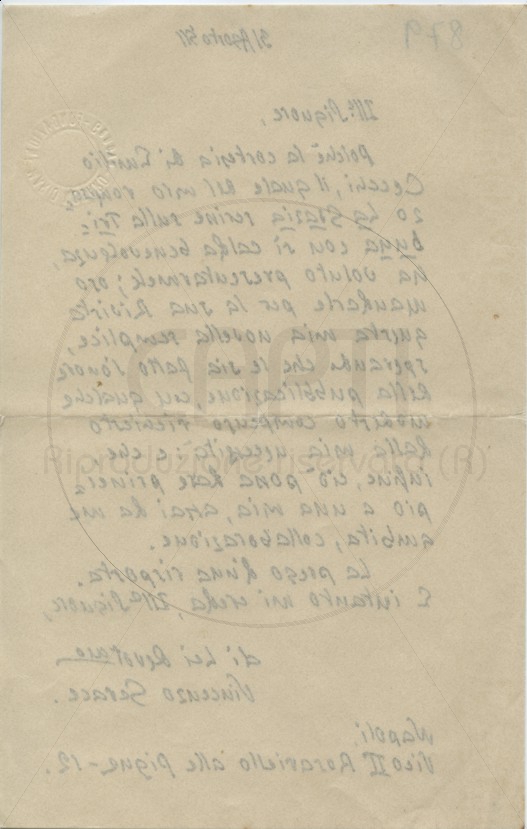 879
31 Agosto '911
Ill.º Signore,
Poiché la cortesia di Emilio
Cecchi, il quale del mio roman=
zo La Grazia scrisse sulla Tri=
buna con sì calda benevolenza,
ha voluto presentarmele; oso
mandarle per la sua Rivista
questa mia novella semplice,
sperando che le sia fatto l'onore
della pubblicazione, con qualche
modesto compenso richiesto
dalla mia necessità; e che
infine, ciò possa dare princi=
pio a una mia, assai da me
ambita, collaborazione.
La prego d'una risposta.
E intanto mi creda, Ill.º Signore,
di Lei devotmo
Vincenzo Gerace.
Napoli,
Vico II Rosariello alle Pigne-12.
Riproduzione riservata (R)